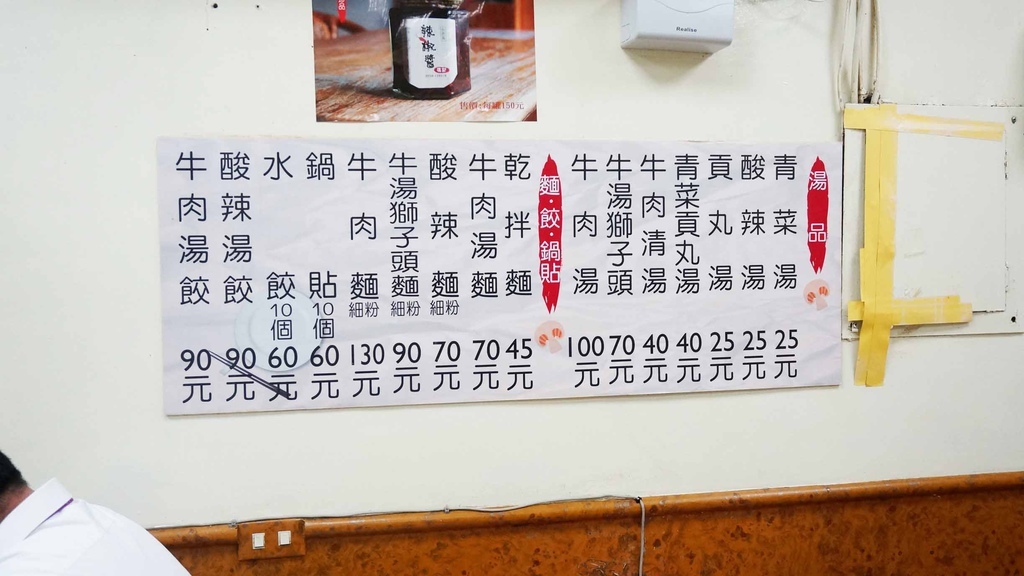 辣椒醬
售價:每罐150元
Realise
湯品
青菜湯 25元
酸辣湯 25元
貢丸湯 25元
青菜貢丸湯 40元
牛肉清湯 40元
牛湯獅子頭 70元
牛肉湯 100元
麵・餃・鍋貼
乾拌麵 45元
牛肉湯麵 70元
酸辣麵 細粉 70元
牛湯獅子頭麵 細粉 90元
牛肉麵 細粉 130元
鍋貼 10個 60元
水餃 10個 60元
酸辣湯餃 90元
牛肉湯餃 90元